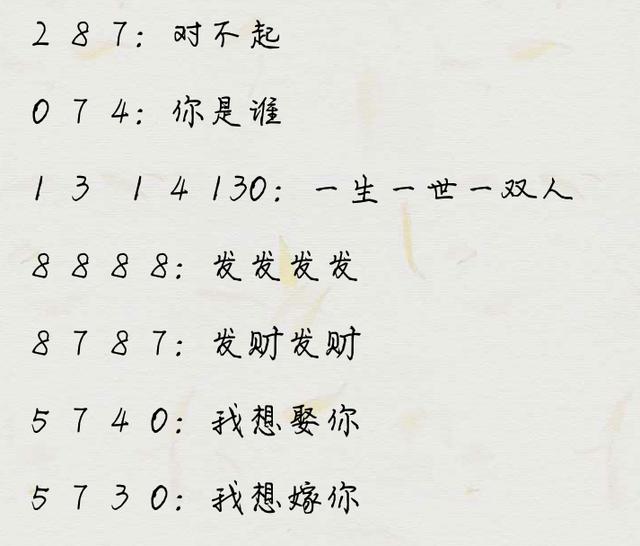 2 8 7: 对不起
0 7 4: 你是谁
1 3 1 4 130: 一生一世一双人
8 8 8 8: 发发发发
8 7 8 7: 发财发财
5 7 4 0: 我想娶你
5 7 3 0: 我想嫁你